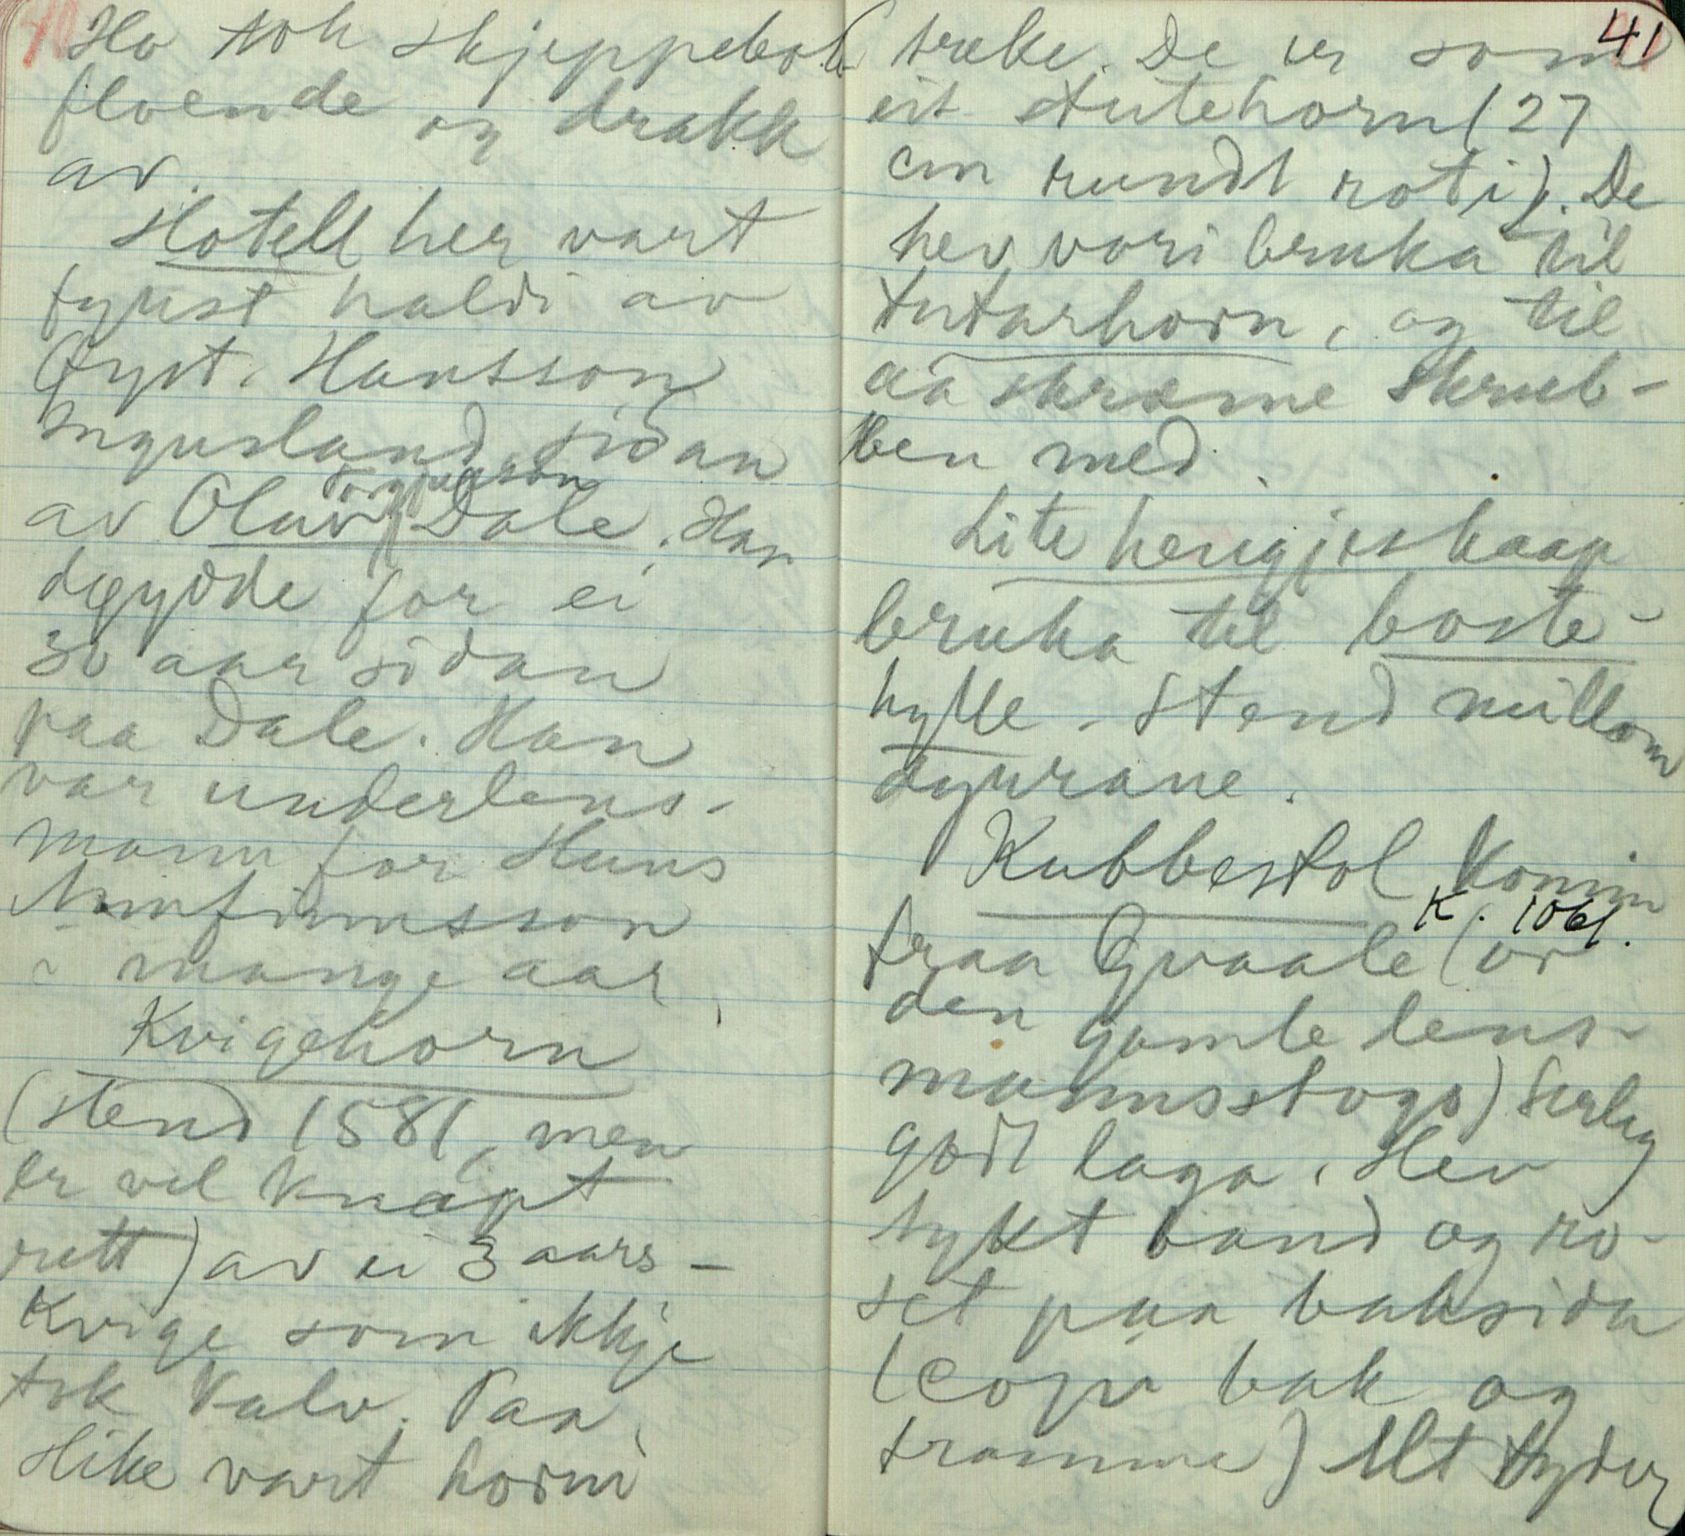 40
Ho tok skjeppebolle
floande og drakk
av.
Hotell her vart
fyrst haldi av
Øyst. Hansson
Ingusland, sidan
av Oluv Torgjusson Dale. Han
døydde for ei
30 aar sidan
paa Dale. Han
var underlens-
mann for Hans
Arnfinnsson
i mange aar.
Kvigehorn
(stend 1581, men
er vel knapt
rett) av ei 3 aars-
kvige som ikkje
tok kalv. Paa
slike vart horni
41
sræke. De er som
eit stutehorn (27
cm rundt roti). De
hev vori bruka til
tutarhorn, og til
aa skræme skrub-
ben med.
Lite hengjeskaap
bruka til boste-
hylle. Stend millom
dyrrane.
Kubbestol komin
K. 1061.
fraa Kvaale (or
den gamle lens-
mannsstogo) Serleg
godt laga. Hev
tykt band og ro-
set paa baksida
(Copi bak og
framme) Alt tyder